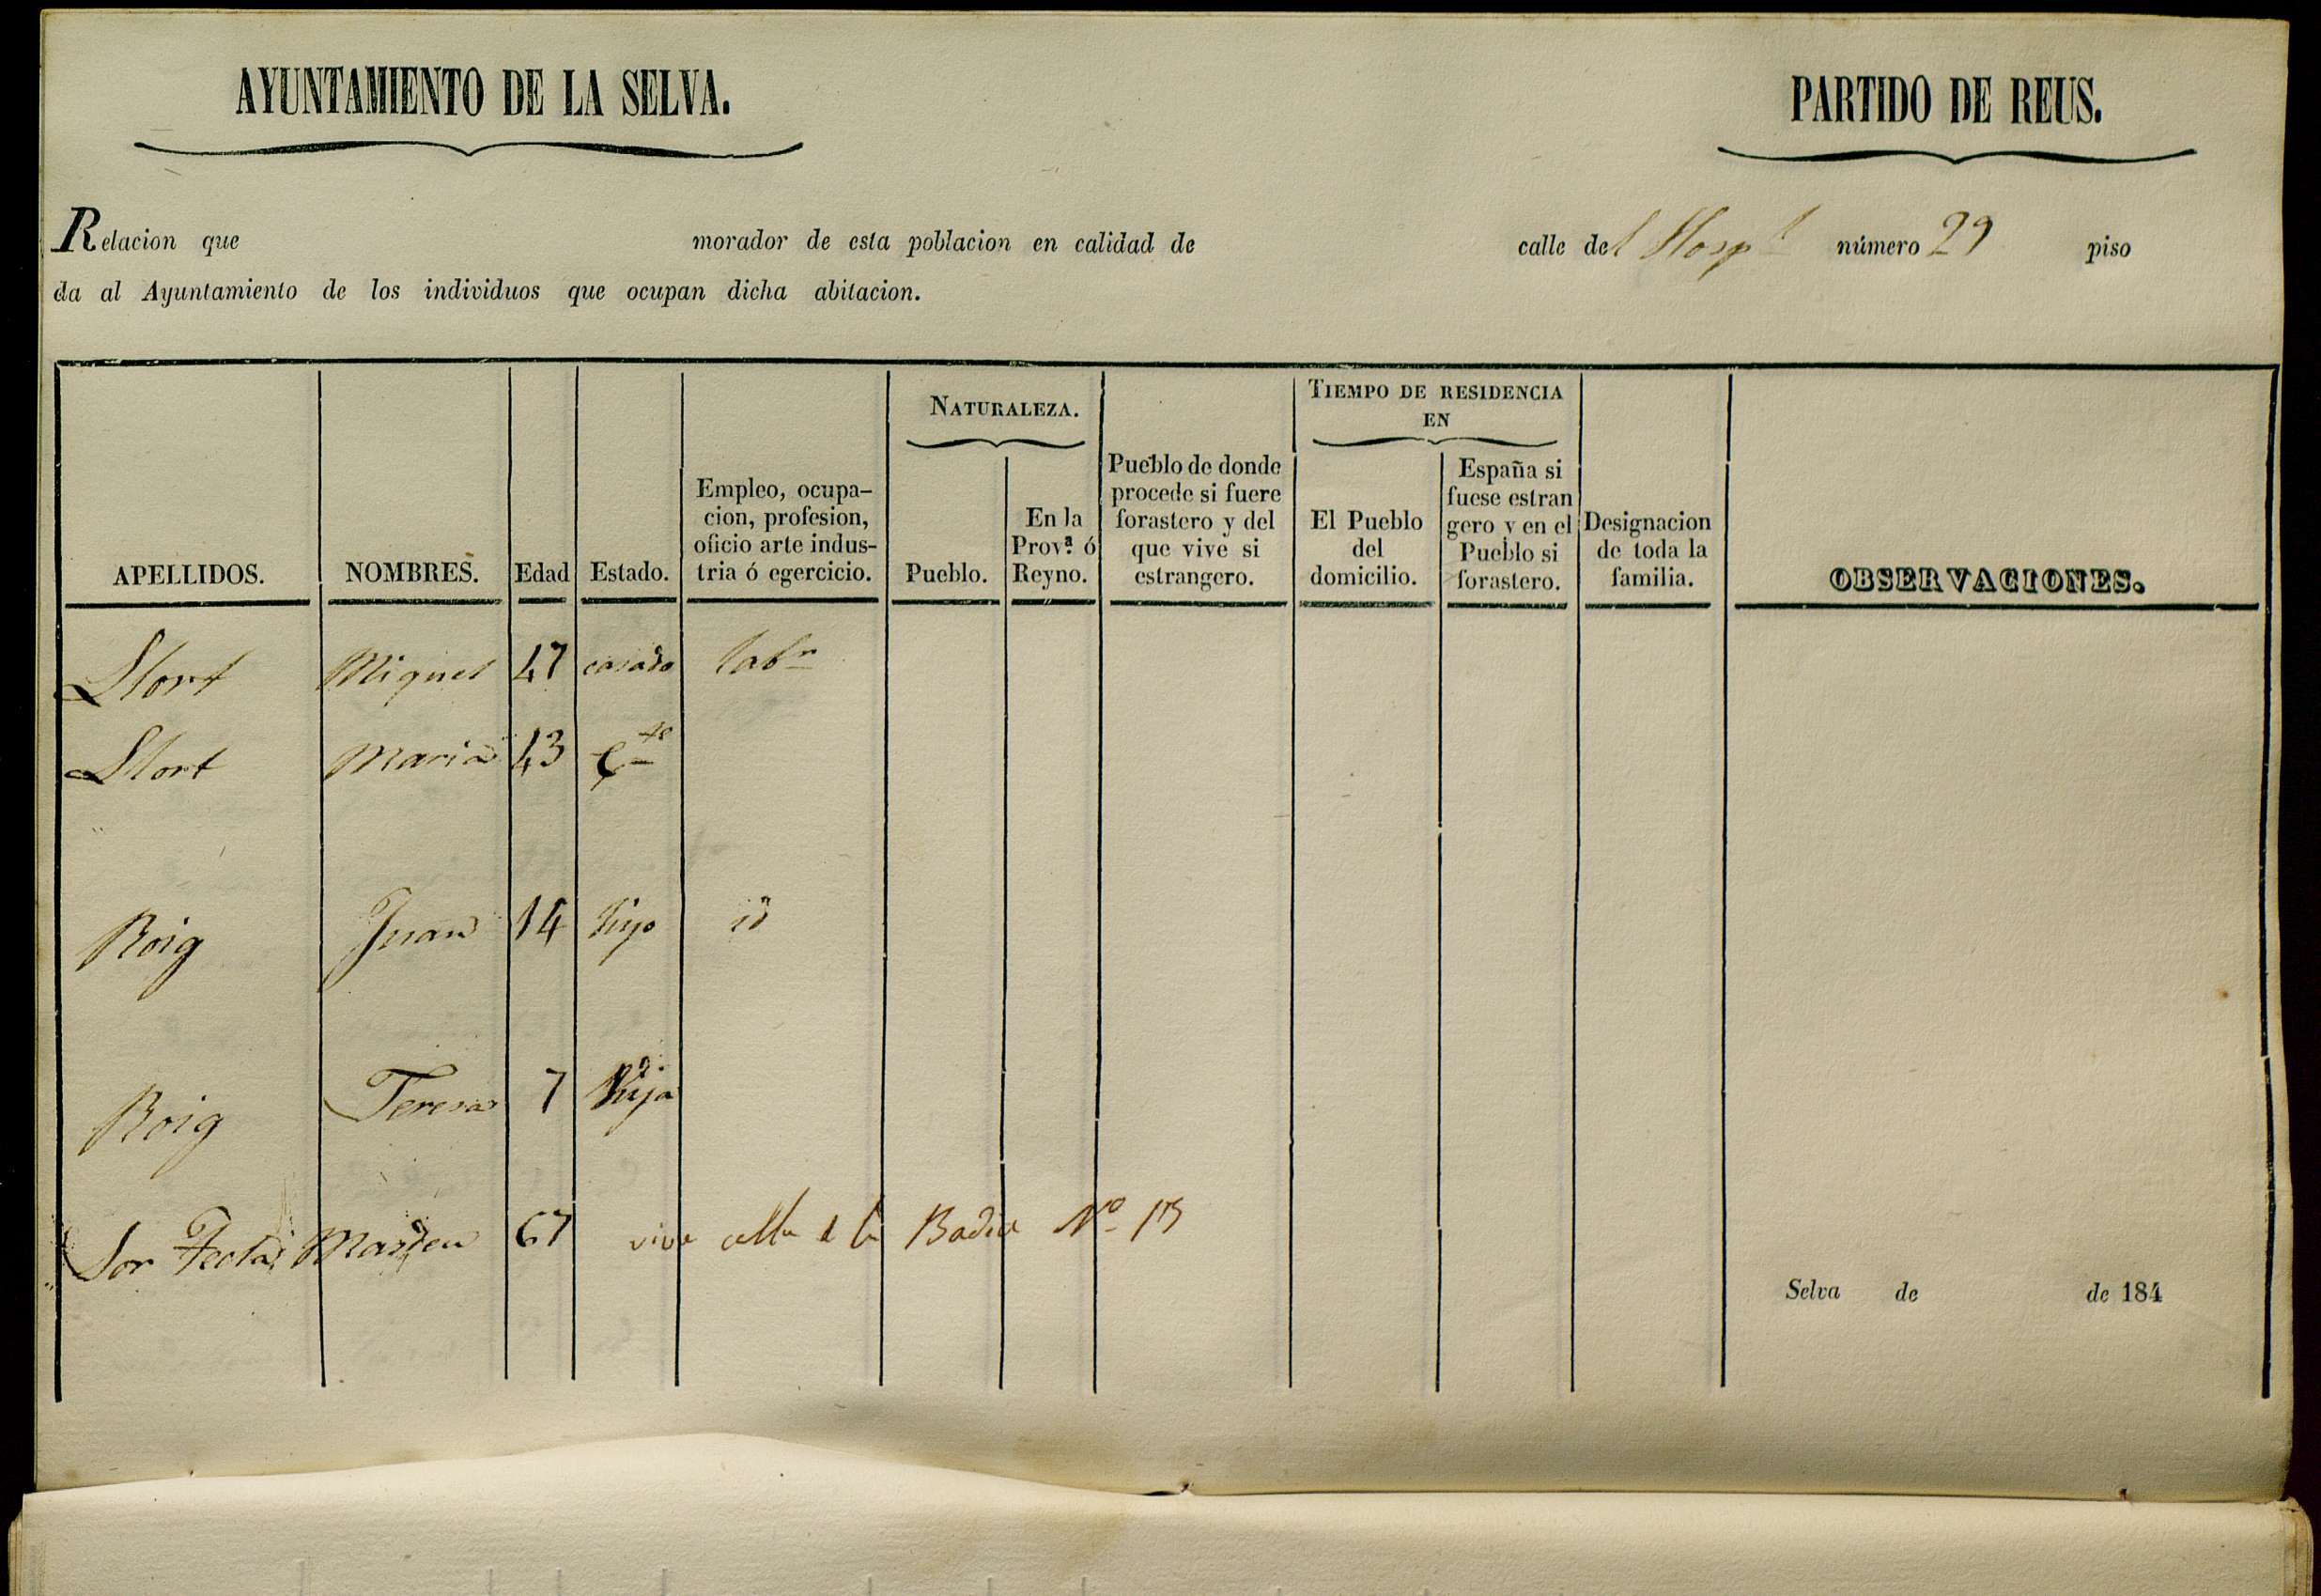 AYUNTAMIENTO DE LA SELVA.
PARTIDO DE REUS.
Relacion que morador de esta poblacion en calidad de calle del Hospl número 29 piso
da al Ayuntamiento de los individuos que ocupan dicha abitacion.
APELLIDOS.
NOMBRES.
Edad
Estado.
Empleo, ocupa-
cion, profesion,
oficio arte indus-
tria ó egercicio.
NATURALEZA.
Pueblo.
En la
Provª. ó
Reyno.
Pueblo de donde
procede si fuere
forastero y del
que vive si
estrangero.
TIEMPO DE RESIDENCIA
EN
El Pueblo
del
domicilio.
España si
fuese estran
gero y en el
Pueblo si
forastero.
Designacion
de toda la
familia.
OBSERVACIONES.
Llort Miquel 47 casado labr
Llort Maria 43 Cte
Roig Juan 14 hijo id
Roig Teresa 7 hija
Sor Tecla Masdeu 67 vive calle d la Badia Nº
Selva de de 184